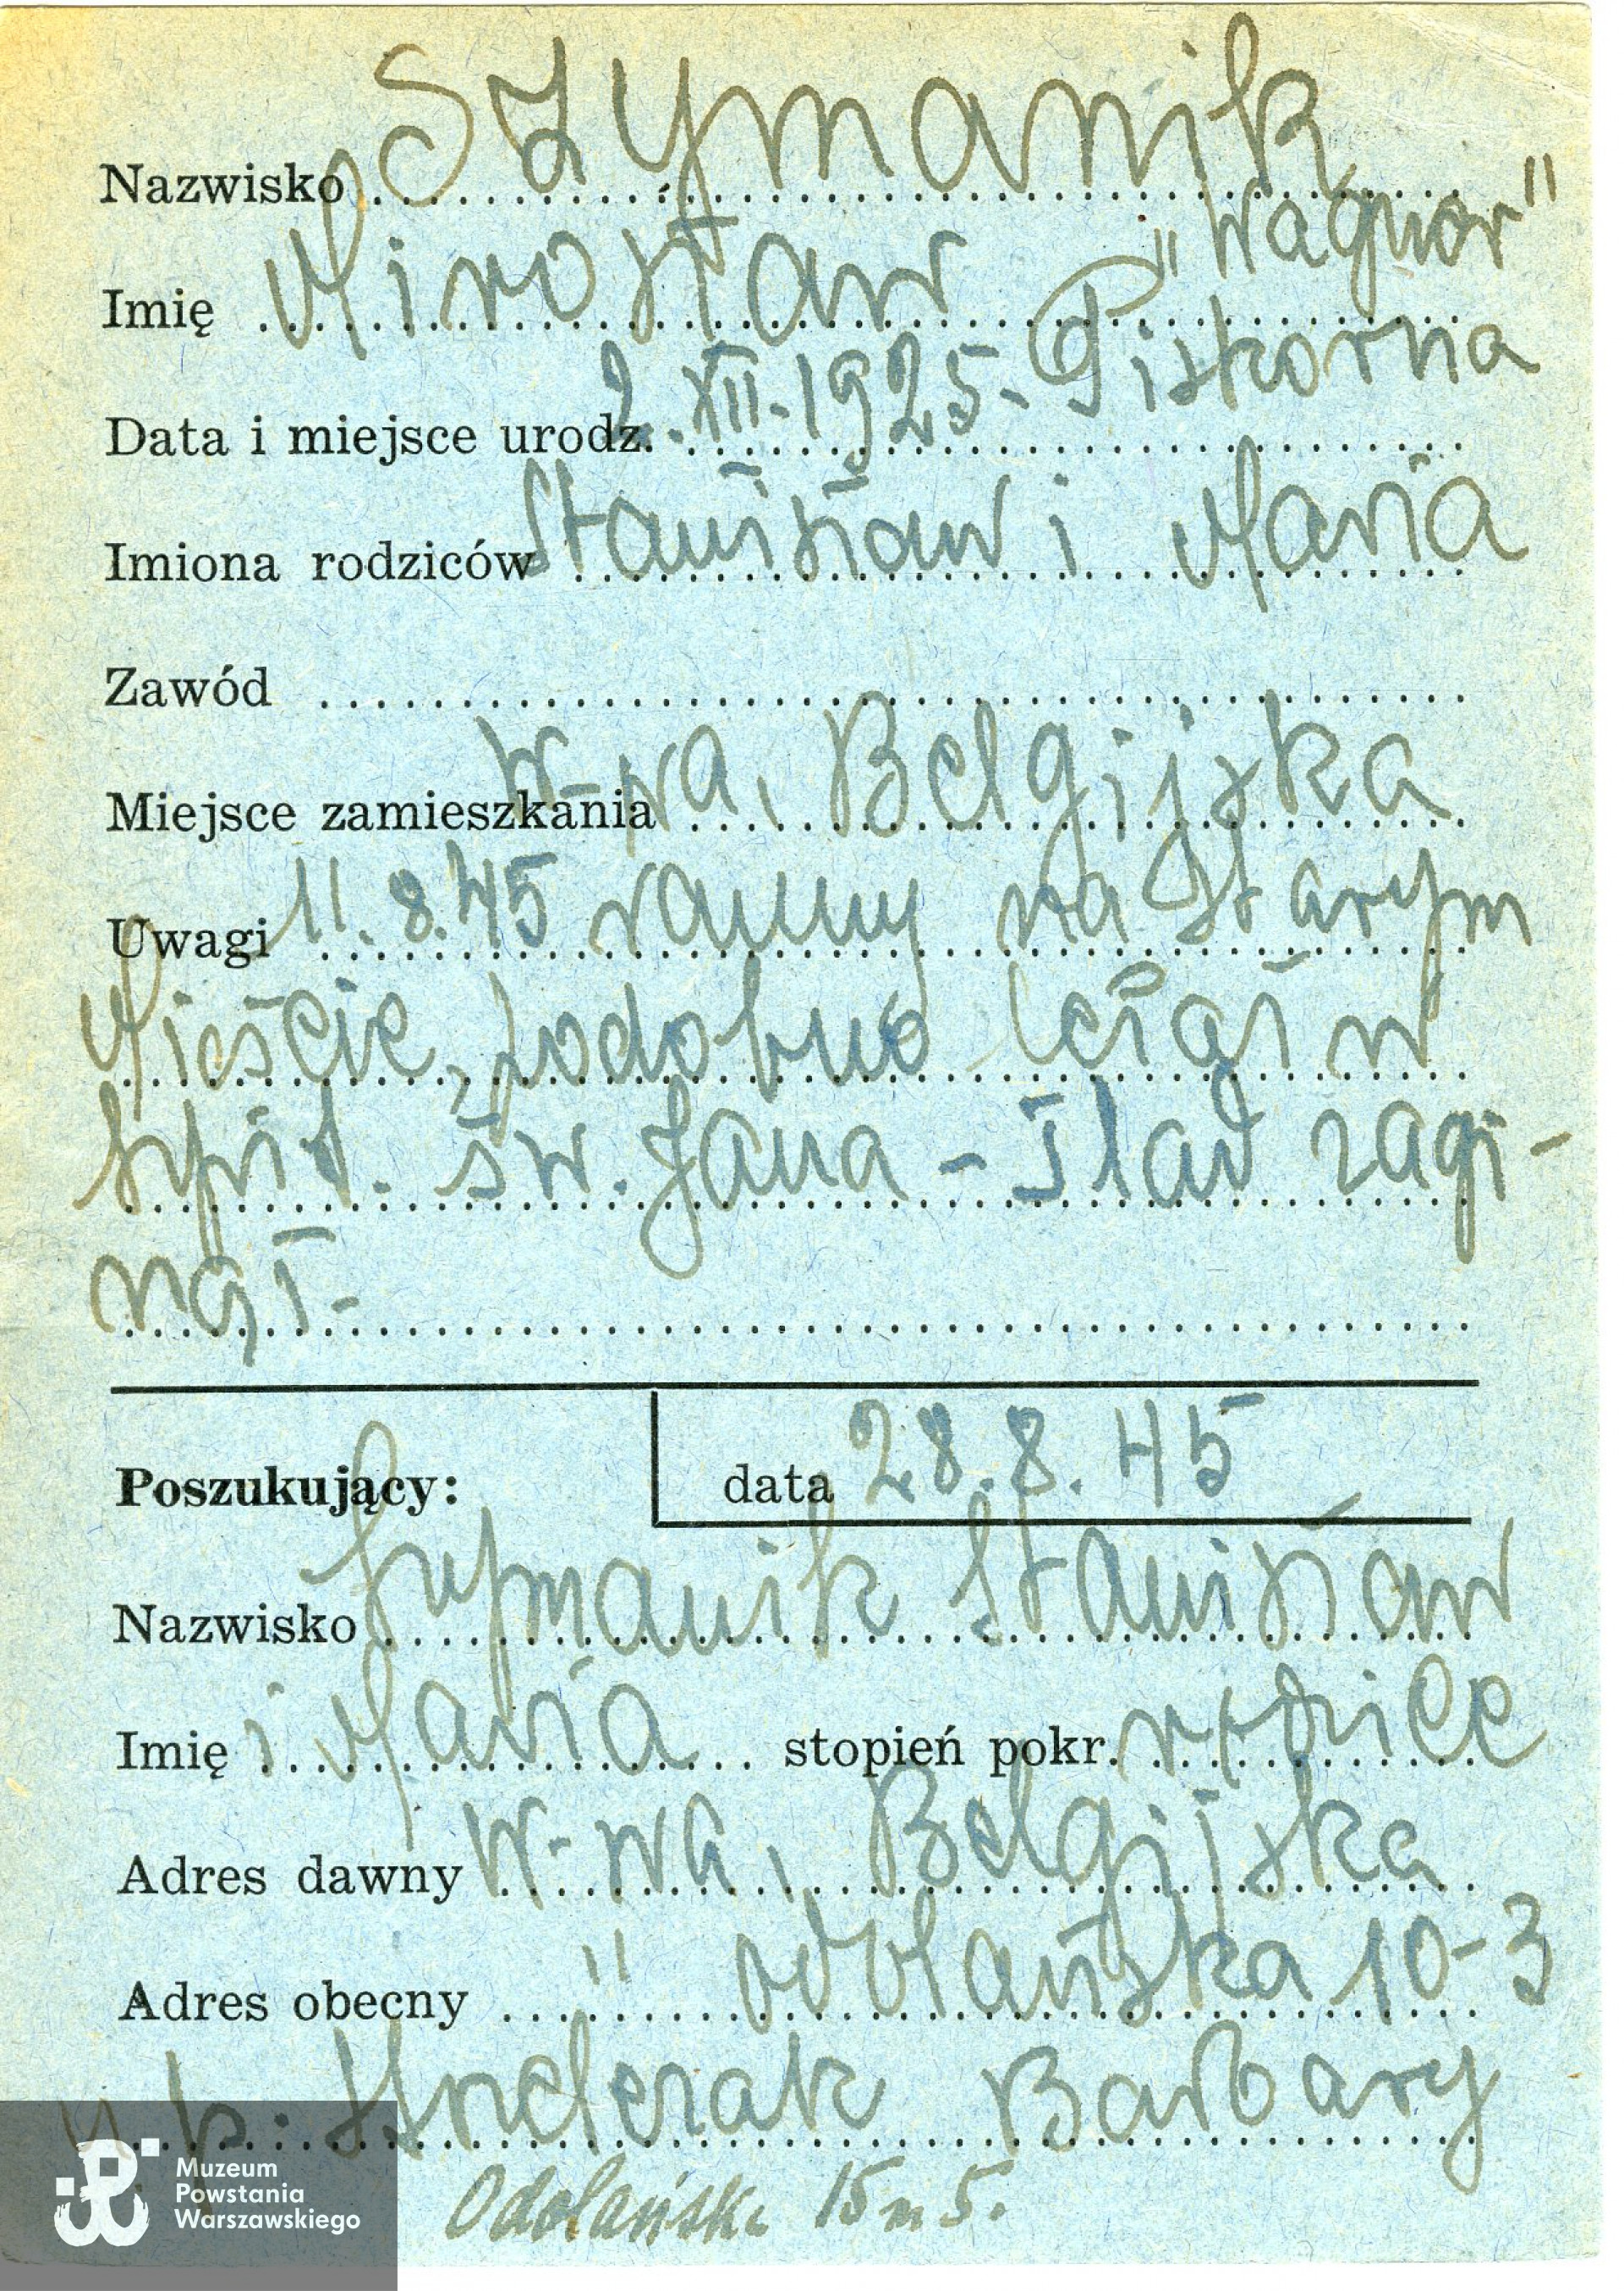 Nazwisko Szymanik
"Wagnor"
Imię Mirosław
Data i miejsce urodz. 2.XII.1925. Piskornia
Imiona rodziców Stanisław i Maria
Zawód
Miejsce zamieszkania W-wa, Belgijska
Uwagi 11.8.45 ranny na Starym
Mieście, podobno leżał w
Szpit. św. Jana - Ślad zagi-
nął-
Poszukujący: data 28.8.45
Nazwisko Szymanik Stanisław
i Maria
Imię stopień pokr. rodzice
Adres dawny W-wa, Belgijska
Adres obecny " Odolańska 10-3
u p. Anderak Barbary
Odolańska 15 m 5.
Muzeum
Powstania
Warszawskiego